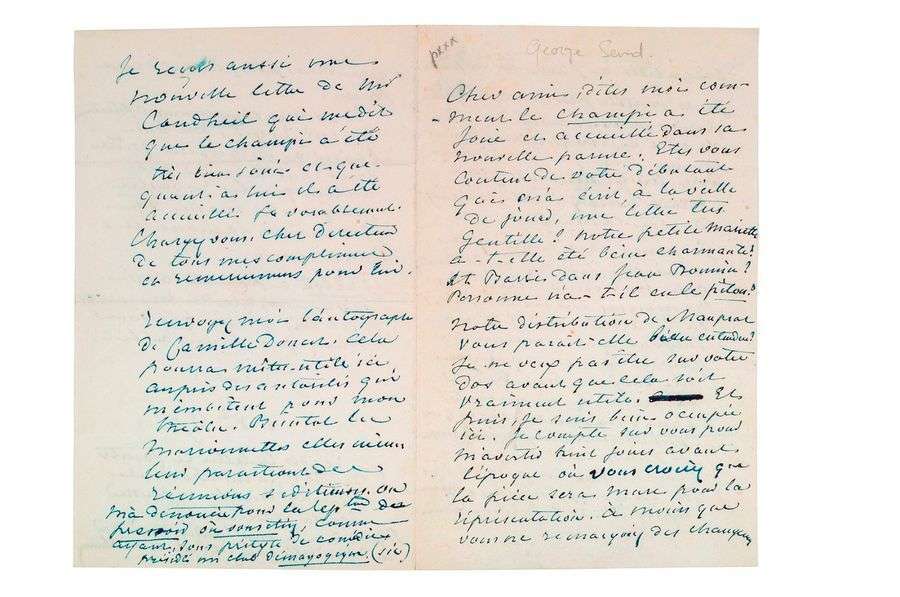 Je reçois aussi une
nouvelle lettre de Mr
qui me dit
que le champi a été
très bien joué et que
quant à lui il a été
accueilli favorablement.
Chargez vous, cher Directeur
de tous mes complimens
et remerciemens pour lui.
Renvoyez moi l'autographe
de Camille Doucet. Cela
pourra m'être utile ici
auprès des autorités qui
m'embêtent pour mon
théâtre. Bientôt les
Marionnettes elles mêmes
leur paraitront des
réunions séditieuses. On
m'a dénoncée pour la
ou comme
ayant, sous prétexte de comédie
présidé un club démagogique. (sic)
pxxx
George Sand.
Cher ami, dites moi com-
-ment le champi a été
joué et accueilli dans sa
nouvelle parure. Etes vous
content de votre débutant
qui m'a écrit, à la veille
de jouer, une lettre très
gentille? Notre petite Mariette
a-t-elle été bien charmante?
Et Barré dans Jean Bonnin?
Personne n'a-t-il eu le
Notre distribution de Mauprat
vous parait-elle bien entendue?
Je ne veux pas être sur votre
dos avant que cela soit
vraiment utile. Et
puis, je suis bien occupée
ici. Je compte sur vous pour
m'avertir huit jours avant
l'époque où vous croirez que
la pièce sera mure pour la
représentation. à moins que
vous ne remarquiez des changemens